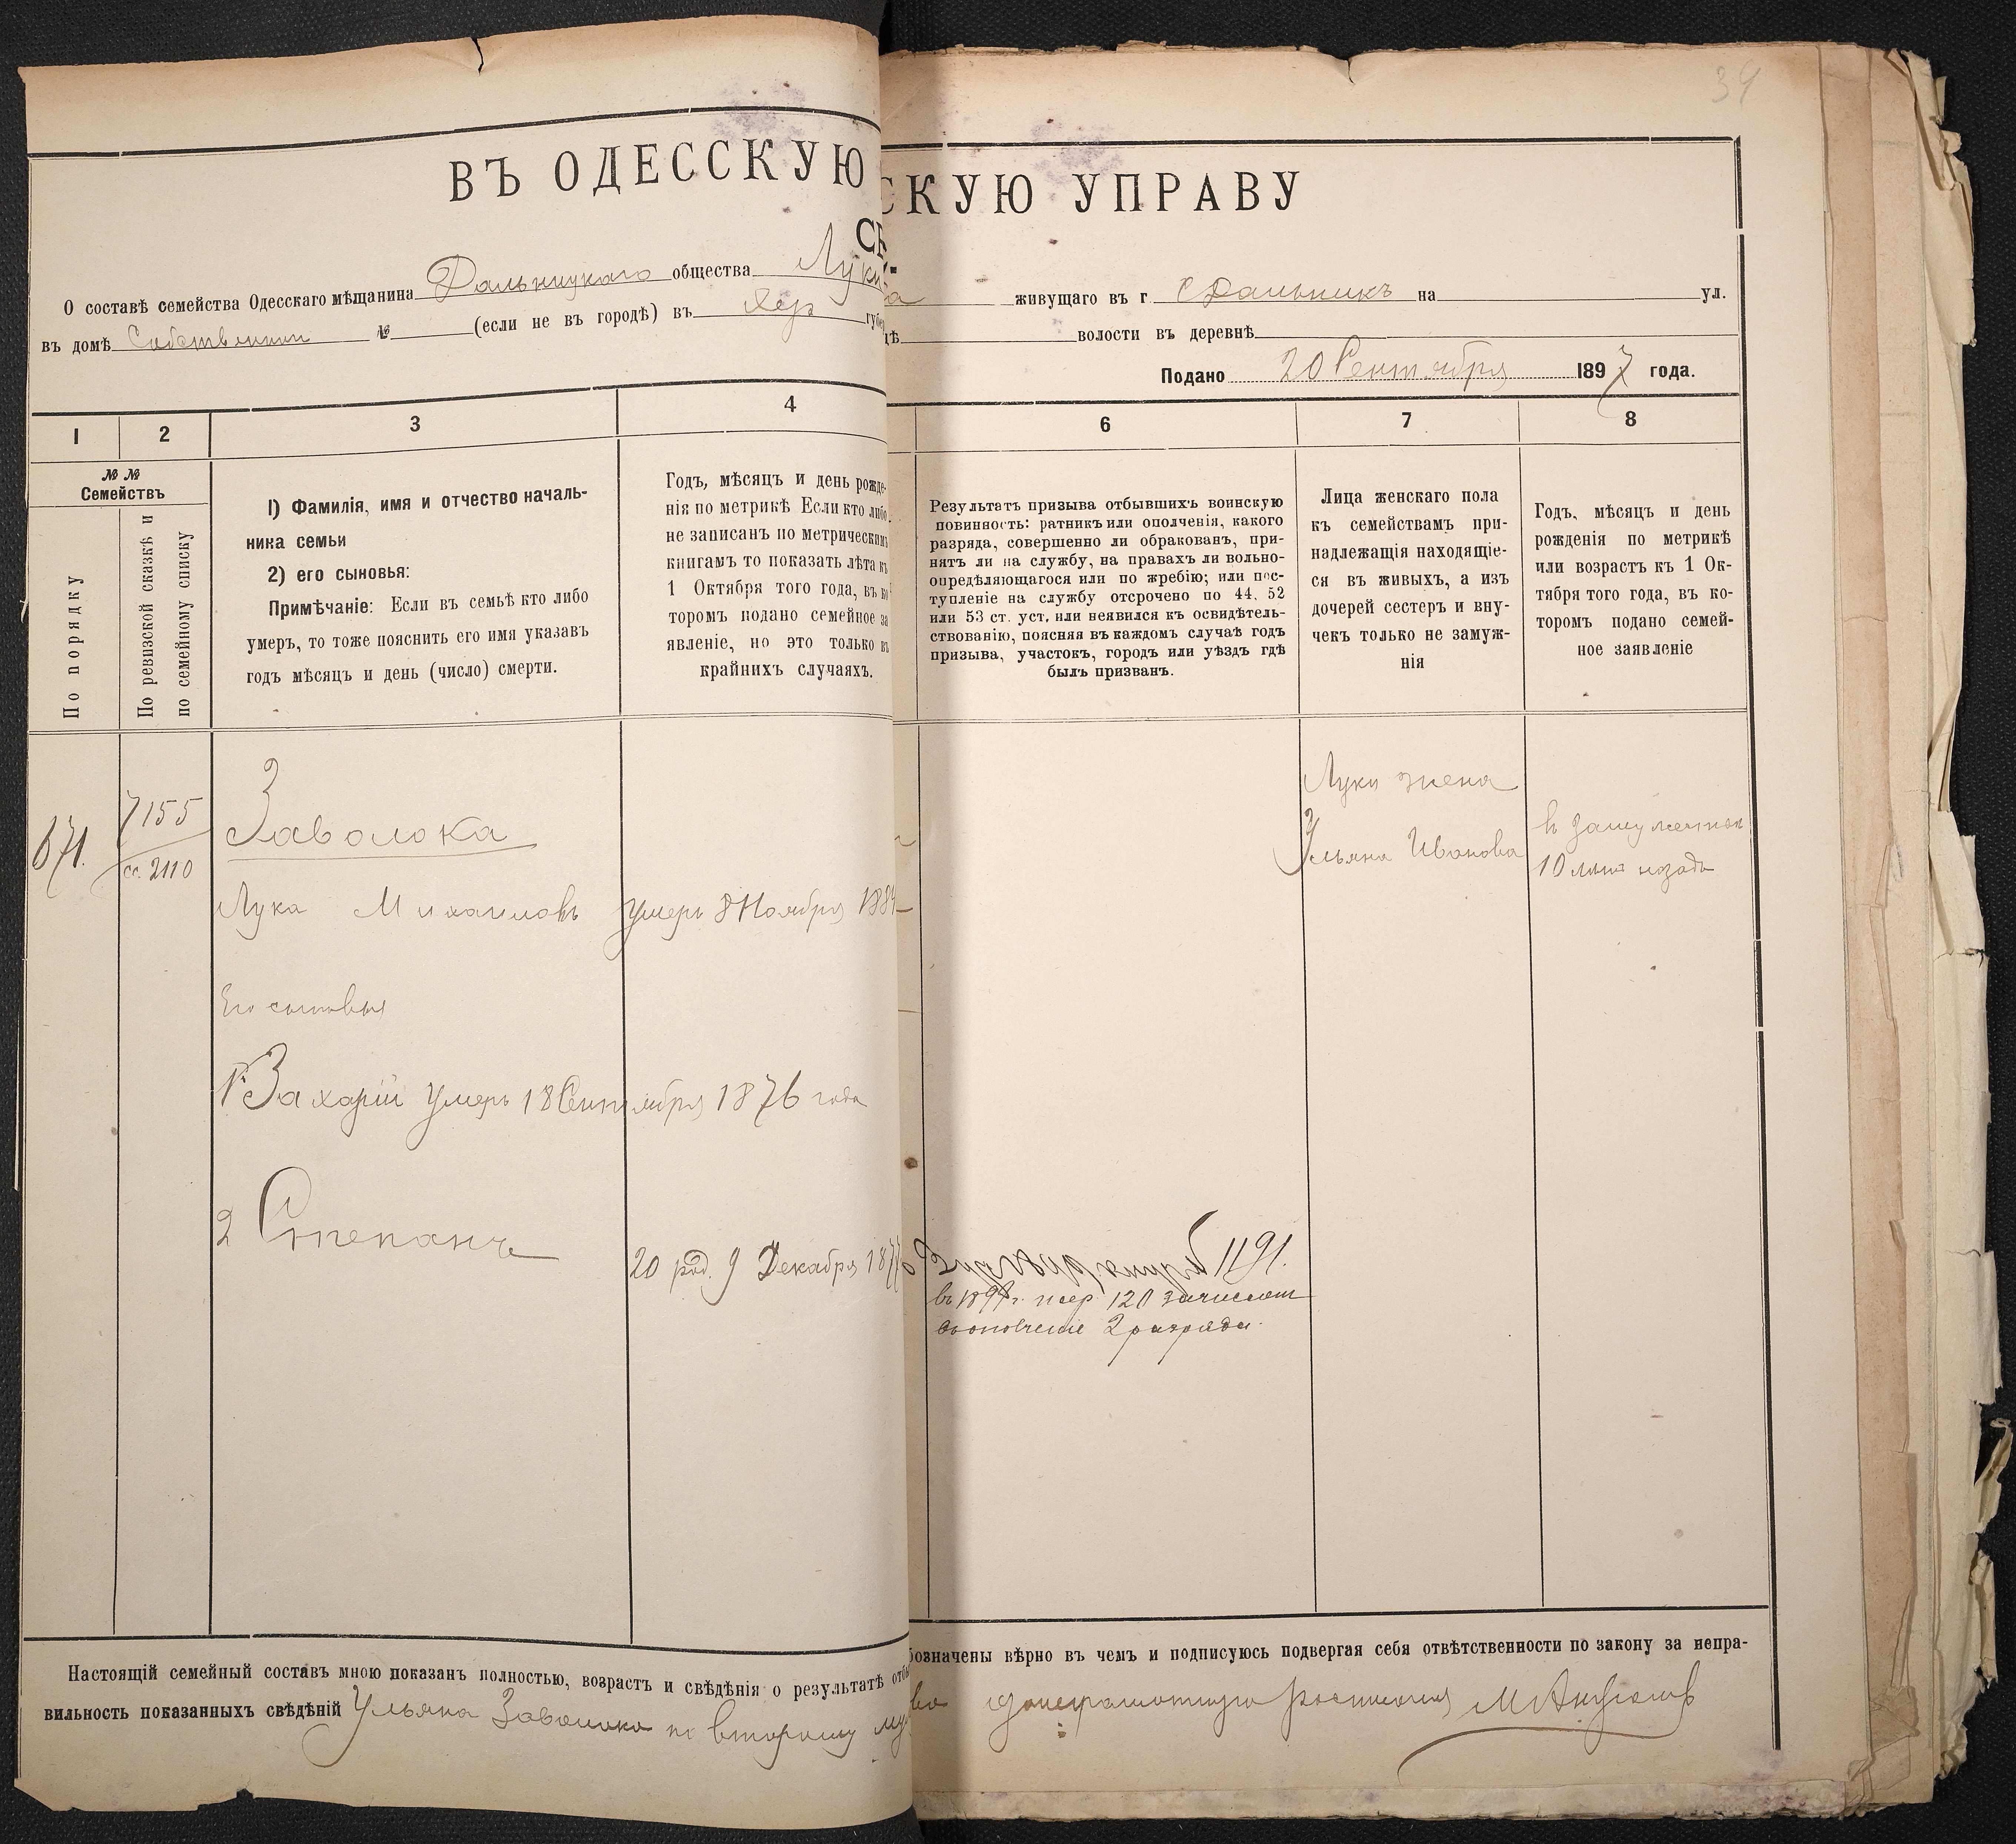 39
ВЪ ОДЕССКУЮ
СКУЮ УПРАВУ
О составѣ семейства Одесскаго мѣщанина Дальницкаго общества Луки
живущаго въ г. с Дальникъ на ул.
въ домѣ Собственном № (если не въ городѣ) въ Хер губе
дѣ волости въ деревнѣ
Подано 20 Сентября 1897 года.
1 2 3 4 6 7 8
№ №
Семействъ
По порядку
По ревизской сказкѣ и
по семейному списку
1) Фамилія, имя и отчество началь-
ника семьи
2) его сыновья:
Примѣчаніе: Если въ семьѣ кто либо
умеръ, то тоже пояснить его имя указавъ
годъ мѣсяцъ и день (число) смерти.
Годъ, мѣсяцъ и день рожде-
нія по метрикѣ Если кто либо
не записанъ по метрическимъ
книгамъ то показать лѣта къ
1 Октября того года, въ ко
торомъ подано семейное за
явленіе, но это только въ
крайнихъ случаяхъ.
Результатъ призыва отбывшихъ воинскую
повинность: ратникъ или ополченія, какого
разряда, совершенно ли обракованъ, при-
нятъ ли на службу, на правахъ ли вольно-
опредѣляющагося или по жребію; или пос-
тупленіе на службу отсрочено по 44, 52
или 53 ст. уст. или неявился къ освидѣтель-
ствованію, поясняя въ каждомъ случаѣ годъ
призыва, участокъ, городъ или уѣздъ гдѣ
былъ призванъ.
Лица женскаго пола
къ семействамъ при-
надлежащія находящіе-
ся въ живыхъ, а изъ
дочерей сестеръ и вну-
чекъ только не замуж-
нія
Годъ, мѣсяцъ и день
рожденія по метрикѣ
или возрастъ къ 1 Ок-
тября того года, въ ко-
торомъ подано семей-
ное заявленіе
671.
7155
сс. 2110
Заволока
Лука Михаиловъ умеръ 8 Ноября 1884
Его сыновья
1. Захарій умеръ 18 Сентября 1876 года
2 Степанъ
20 род. 9 Декабря 1876
1191.
въ 1897г. жер 120 зачислен
въ ополченіе 2 разряда.
Луки жена
Ульяна Иванова
в замужестве
10 лет назадъ
Настоящій семейный составъ мною показанъ полностью, возрастъ и свѣдѣнія о результатѣ отбы
бозначены вѣрно въ чемъ и подписуюсь подвергая себя отвѣтственности по закону за непра-
вильность показанныхъ свѣдѣній Ульяна Заволока по второму му